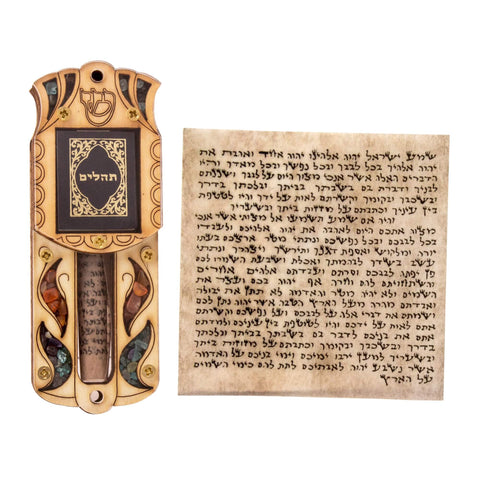 ש
תהלים
שמע ישראל יהוה אלהינו יהוה אחד ואהבת את
יהוה אלהיך בכל לבבך ובכל נפשך ובכל מאדך והיו
הדברים האלה אשר אנכי מצוך היום על לבבך ושננתם
לבניך ודברת בם בשבתך בביתך ובלכתך בדרך
ובשכבך ובקומך וקשרתם לאות על ידך והיו לטטפת
בין עיניך וכתבתם על מזוזות ביתך ובשעריך
והיה אם שמע תשמעו אל מצותי אשר אנכי
מצוה אתכם היום לאהבה את יהוה אלהיכם ולעבדו
בכל לבבכם ובכל נפשכם ונתתי מטר ארצכם בעתו
יורה ומלקוש ואספת דגנך ותירשך ויצהרך ונתתי
עשב בשדך לבהמתך ואכלת ושבעת השמרו לכם
פן יפתה לבבכם וסרתם ועבדתם אלהים אחרים
והשתחויתם להם וחרה אף יהוה בכם ועצר את
השמים ולא יהיה מטר והאדמה לא תתן את יבולה
ואבדתם מהרה מעל הארץ הטבה אשר יהוה נתן לכם
ושמתם את דברי אלה על לבבכם ועל נפשכם וקשרתם
אתם לאות על ידכם והיו לטוטפת בין עיניכם ולמדתם
אתם את בניכם לדבר בם בשבתך בביתך ובלכתך
בדרך ובשכבך ובקומך וכתבתם על מזוזות ביתך
ובשעריך למען ירבו ימיכם וימי בניכם על האדמה
אשר נשבע יהוה לאבתיכם לתת להם כימי השמים
על הארץ